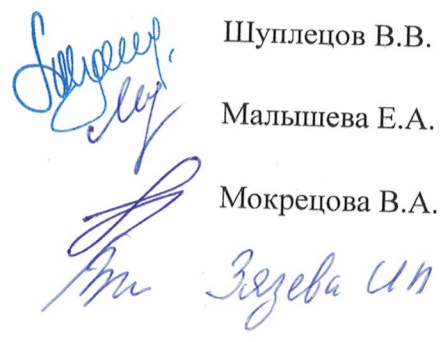 Шуплецов В.В.
Малышева Е.А.
Мокрецова В.А.
Зязева И П